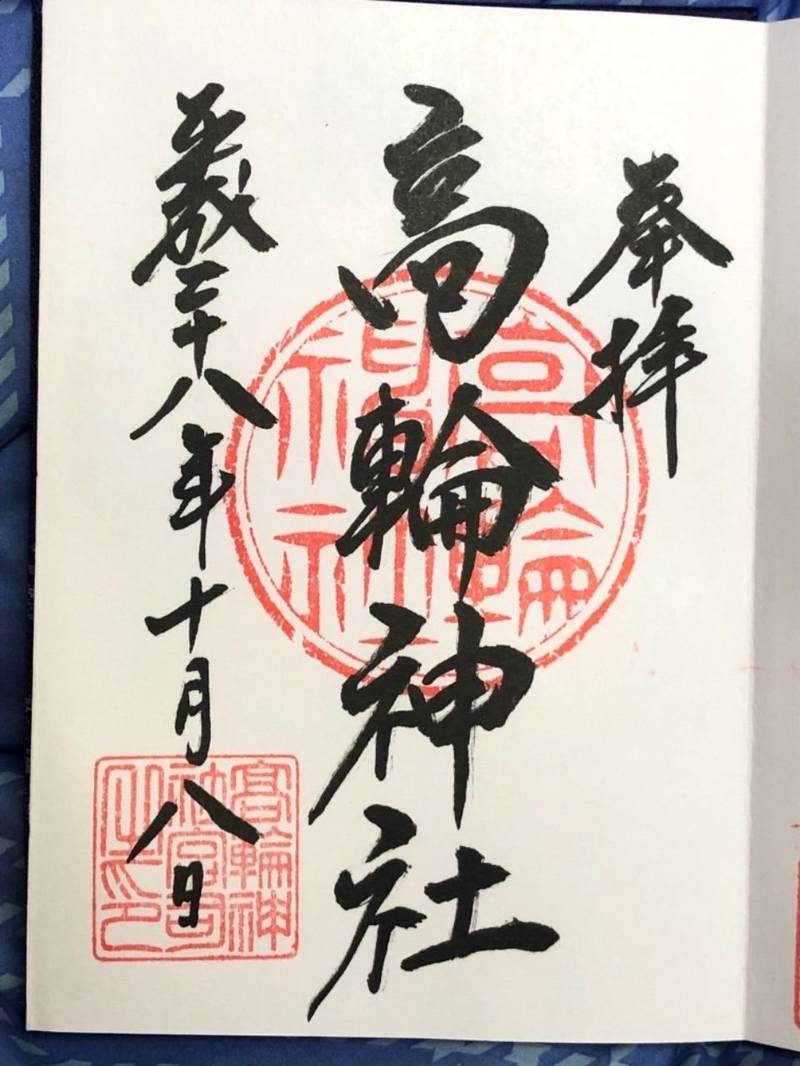 奉拝
高輪神社
平成二十八年十月八日
高輪神社
高輪神社宮司之印